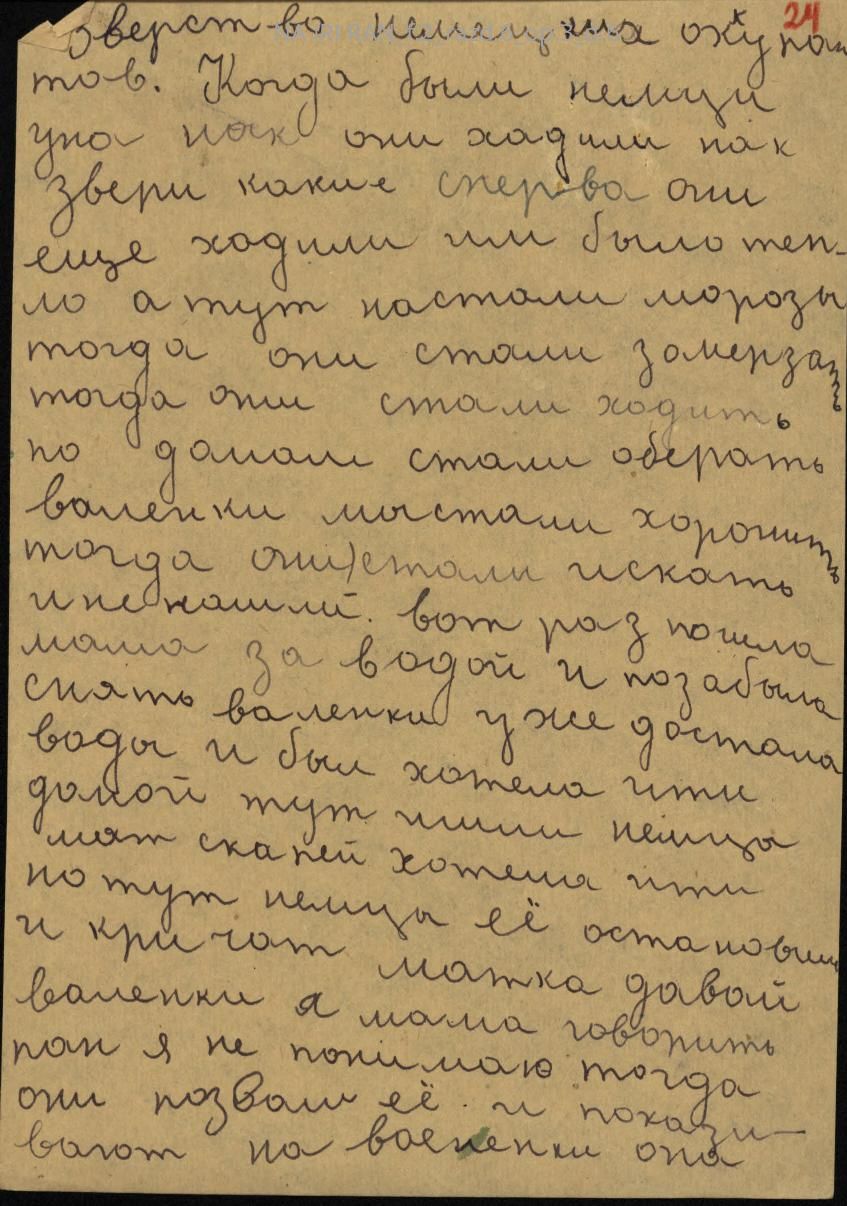 24
Зверство немецких окупан
тов. Когда были немци
уна нак они хадили как
звери какие сперва они
еще ходили им было теп-
ло а тут настали морозы
тогда они стали замерзать
тогда они стали ходить
по дамам стали оберать
валенки мы стали хоронить
тогда они стали искать
и не нашли. вот раз пошла
мама за водой и позабыла
снять валенки уже достала
воды и был хотела ити
дамой тут ишли немцы
мат скапей хотела ити
но тут немцы её остановили
и кричат матка давай
валенки я мама говорить
пан я не понимаю тогда
они позвали её и покази-
вают на валенки она